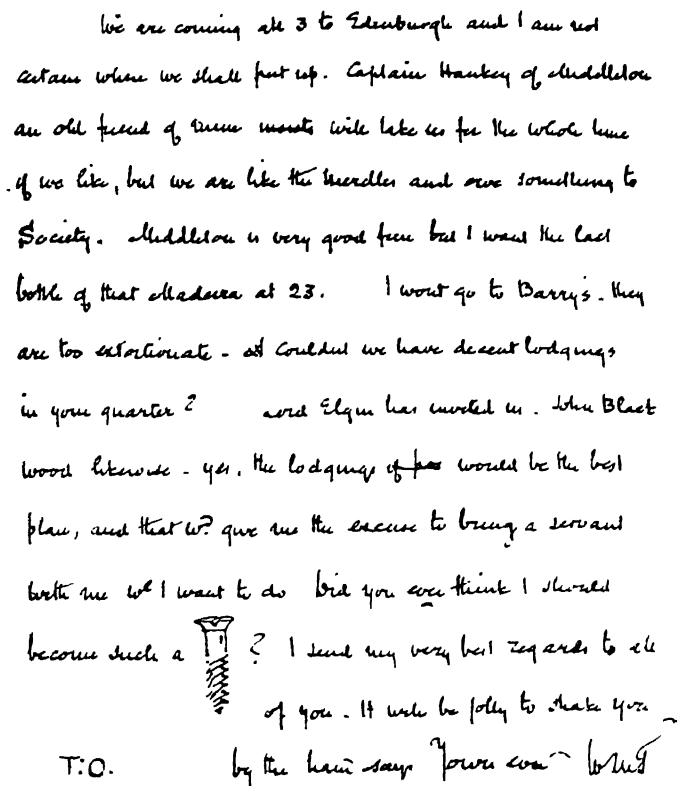 We are coming all 3 to Edinburgh and I am not
certain where we shall put up. Captain Hankey of Middleton
an old friend of mine wants will take us for the whole time
if we like, but we are like the Merdles and owe something to
Society. Middleton is very good fun but I want the last
bottle of that Madeira at 23. I wont go to Barry's. they
are too extortionate - Couldnt we have decent lodgings
in your quarter? Lord Elgin has invited us. John Black
wood likewise - yes, the lodgings if would be the best
plan, and that wd. give me the excuse to bring a servant
with me wh I want to do Did you ever think I should
become such a ? I send my very best regards to all
of you. It will be jolly to shake you
by the han says Yours ever
T.O.